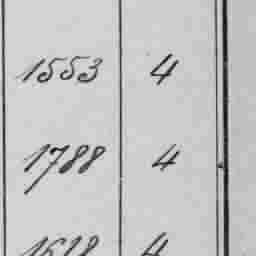 1553 4
1788 4
1618 4